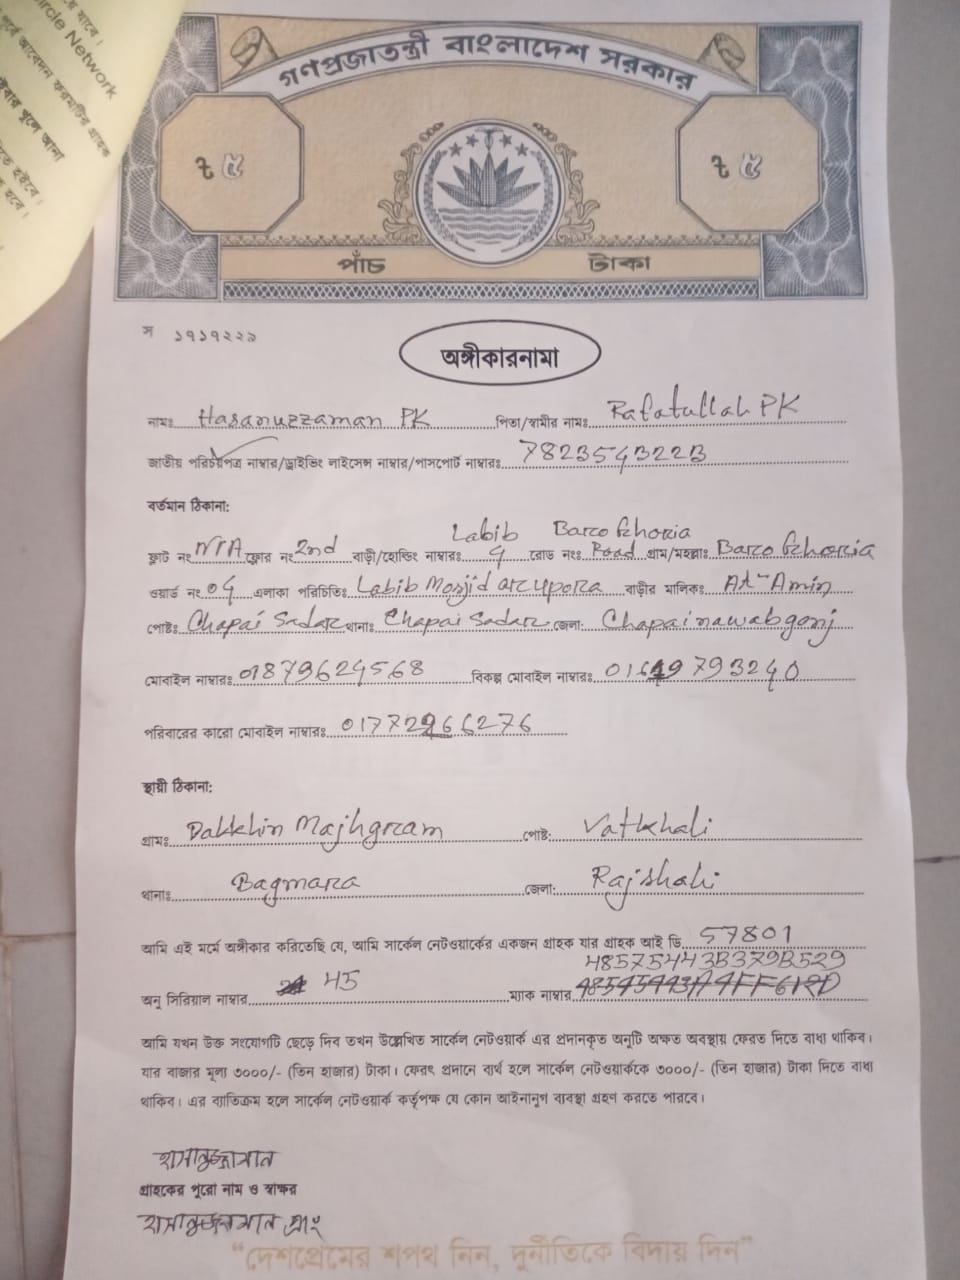 ছে যাবে।
ircle Network
পূর্বে আবেদন ফরমটির গ্রাহক
ইবার খুলে আনা
হইবে।
হবে।
গণপ্রজাতন্ত্রী বাংলাদেশ সরকার
৳ ৫ ৳ ৫
পাঁচ টাকা
স ১৭১৭২২৯
অঙ্গীকারনামা
নামঃ Hasanuzzaman PK পিতা/স্বামীর নামঃ Rafatullah PK
জাতীয় পরিচয়পত্র নাম্বার/ড্রাইভিং লাইসেন্স নাম্বার/পাসপোর্ট নাম্বারঃ 7823543223
বর্তমান ঠিকানা:
Labib Baroghoria
ফ্লাট নং N/A ফ্লোর নং 2nd বাড়ী/হোল্ডিং নাম্বারঃ 4 রোড নংঃ Road গ্রাম/মহল্লাঃ Baroghoria
ওয়ার্ড নং 04 এলাকা পরিচিতিঃ Labib Mosjid arupora বাড়ীর মালিকঃ Al-Amin
পোষ্টঃ Chapai Sadar থানাঃ Chapai Sadar জেলা: Chapainawabgonj
মোবাইল নাম্বারঃ 01879624568 বিকল্প মোবাইল নাম্বারঃ 01619793240
পরিবারের কারো মোবাইল নাম্বারঃ 01772966276
স্থায়ী ঠিকানা:
গ্রামঃ Dakkhin Majhgram পোষ্ট: Vatkhali
থানাঃ Bagmara জেলা: Rajshahi
আমি এই মর্মে অঙ্গীকার করিতেছি যে, আমি সার্কেল নেটওয়ার্কের একজন গ্রাহক যার গ্রাহক আই ডি 57801
48575443B379B529
অনু সিরিয়াল নাম্বার 45 ম্যাক নাম্বার
আমি যখন উক্ত সংযোগটি ছেড়ে দিব তখন উল্লেখিত সার্কেল নেটওয়ার্ক এর প্রদানকৃত অনুটি অক্ষত অবস্থায় ফেরত দিতে বাধ্য থাকিব।
যার বাজার মূল্য ৩০০০/- (তিন হাজার) টাকা। ফেরৎ প্রদানে ব্যর্থ হলে সার্কেল নেটওয়ার্ককে ৩০০০/- (তিন হাজার) টাকা দিতে বাধ্য
থাকিব। এর ব্যতিক্রম হলে সার্কেল নেটওয়ার্ক কর্তৃপক্ষ যে কোন আইনানুগ ব্যবস্থা গ্রহণ করতে পারবে।
হাসানুজ্জামান
গ্রাহকের পুরো নাম ও স্বাক্ষর
হাসানুজ্জামান প্রাং
“দেশপ্রেমের শপথ নিন, দুর্নীতিকে বিদায় দিন”